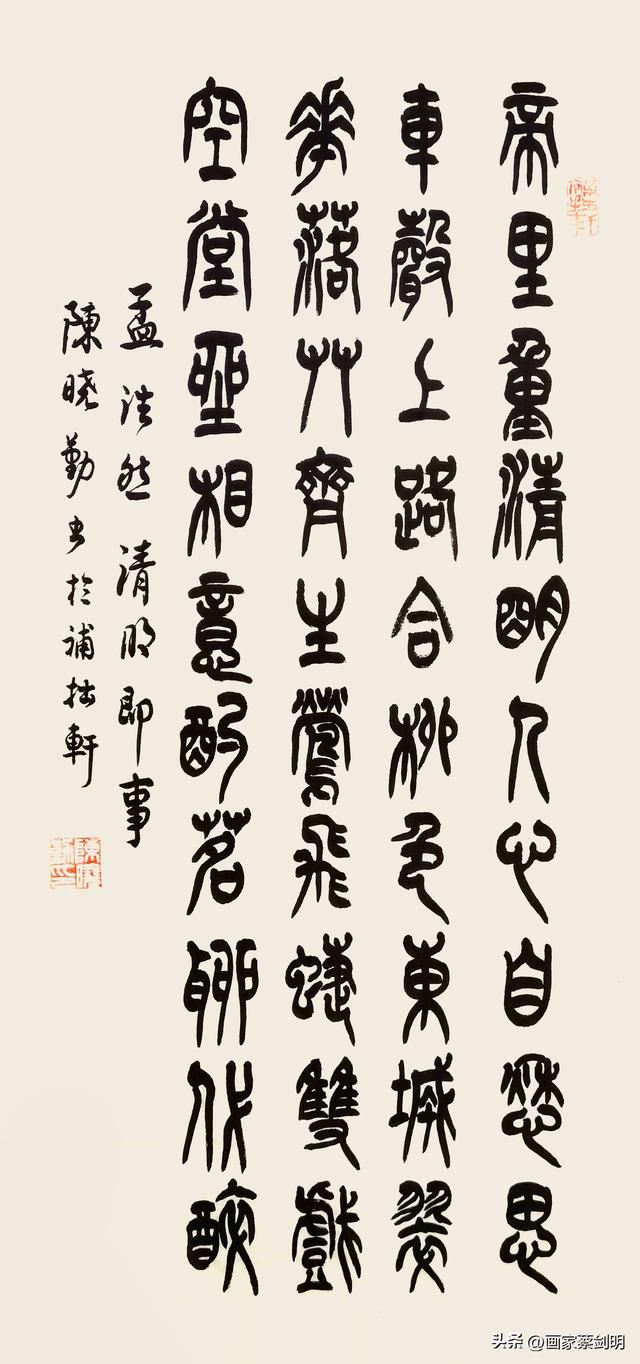 帝里重清明人心自愁思
車聲上路合柳色東城翠
華落艸齊生鶯飛蜨雙戲
空堂坐相意酌茗聊代醉
孟浩然 清明即事
陳晓勤书於補拙軒
头条 @画家蔡剑明